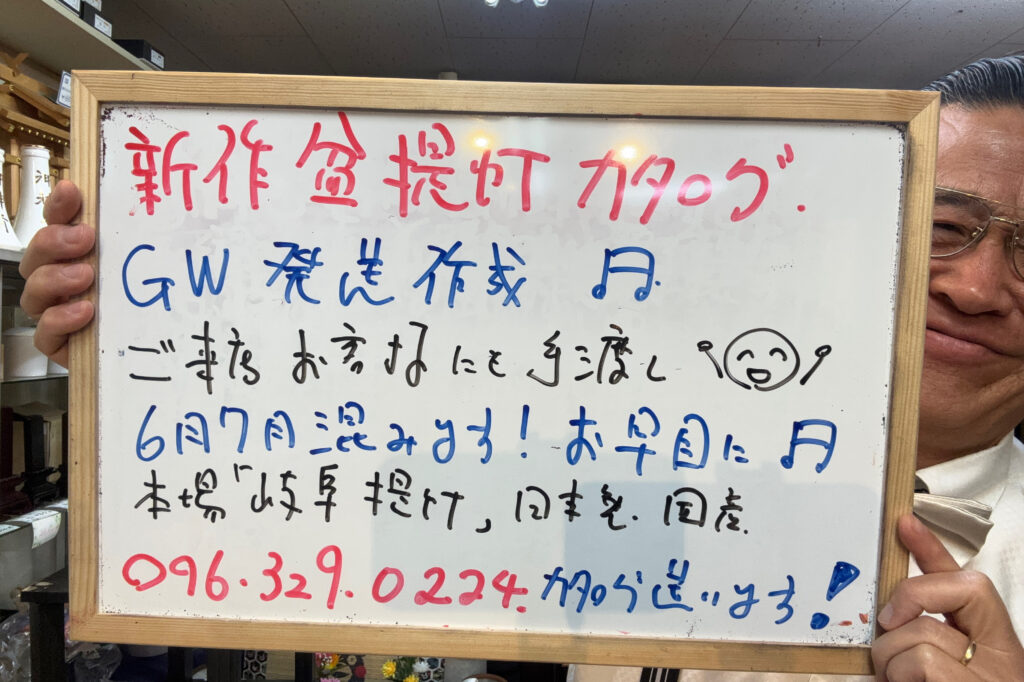 新作盆提灯カタログ.
GW発送作成♫
ご来店お客様にも手渡し
6月7月混みます!お早目に♫
本場「岐阜提灯」日本製.国産.
096.329.0224.カタログ送います!